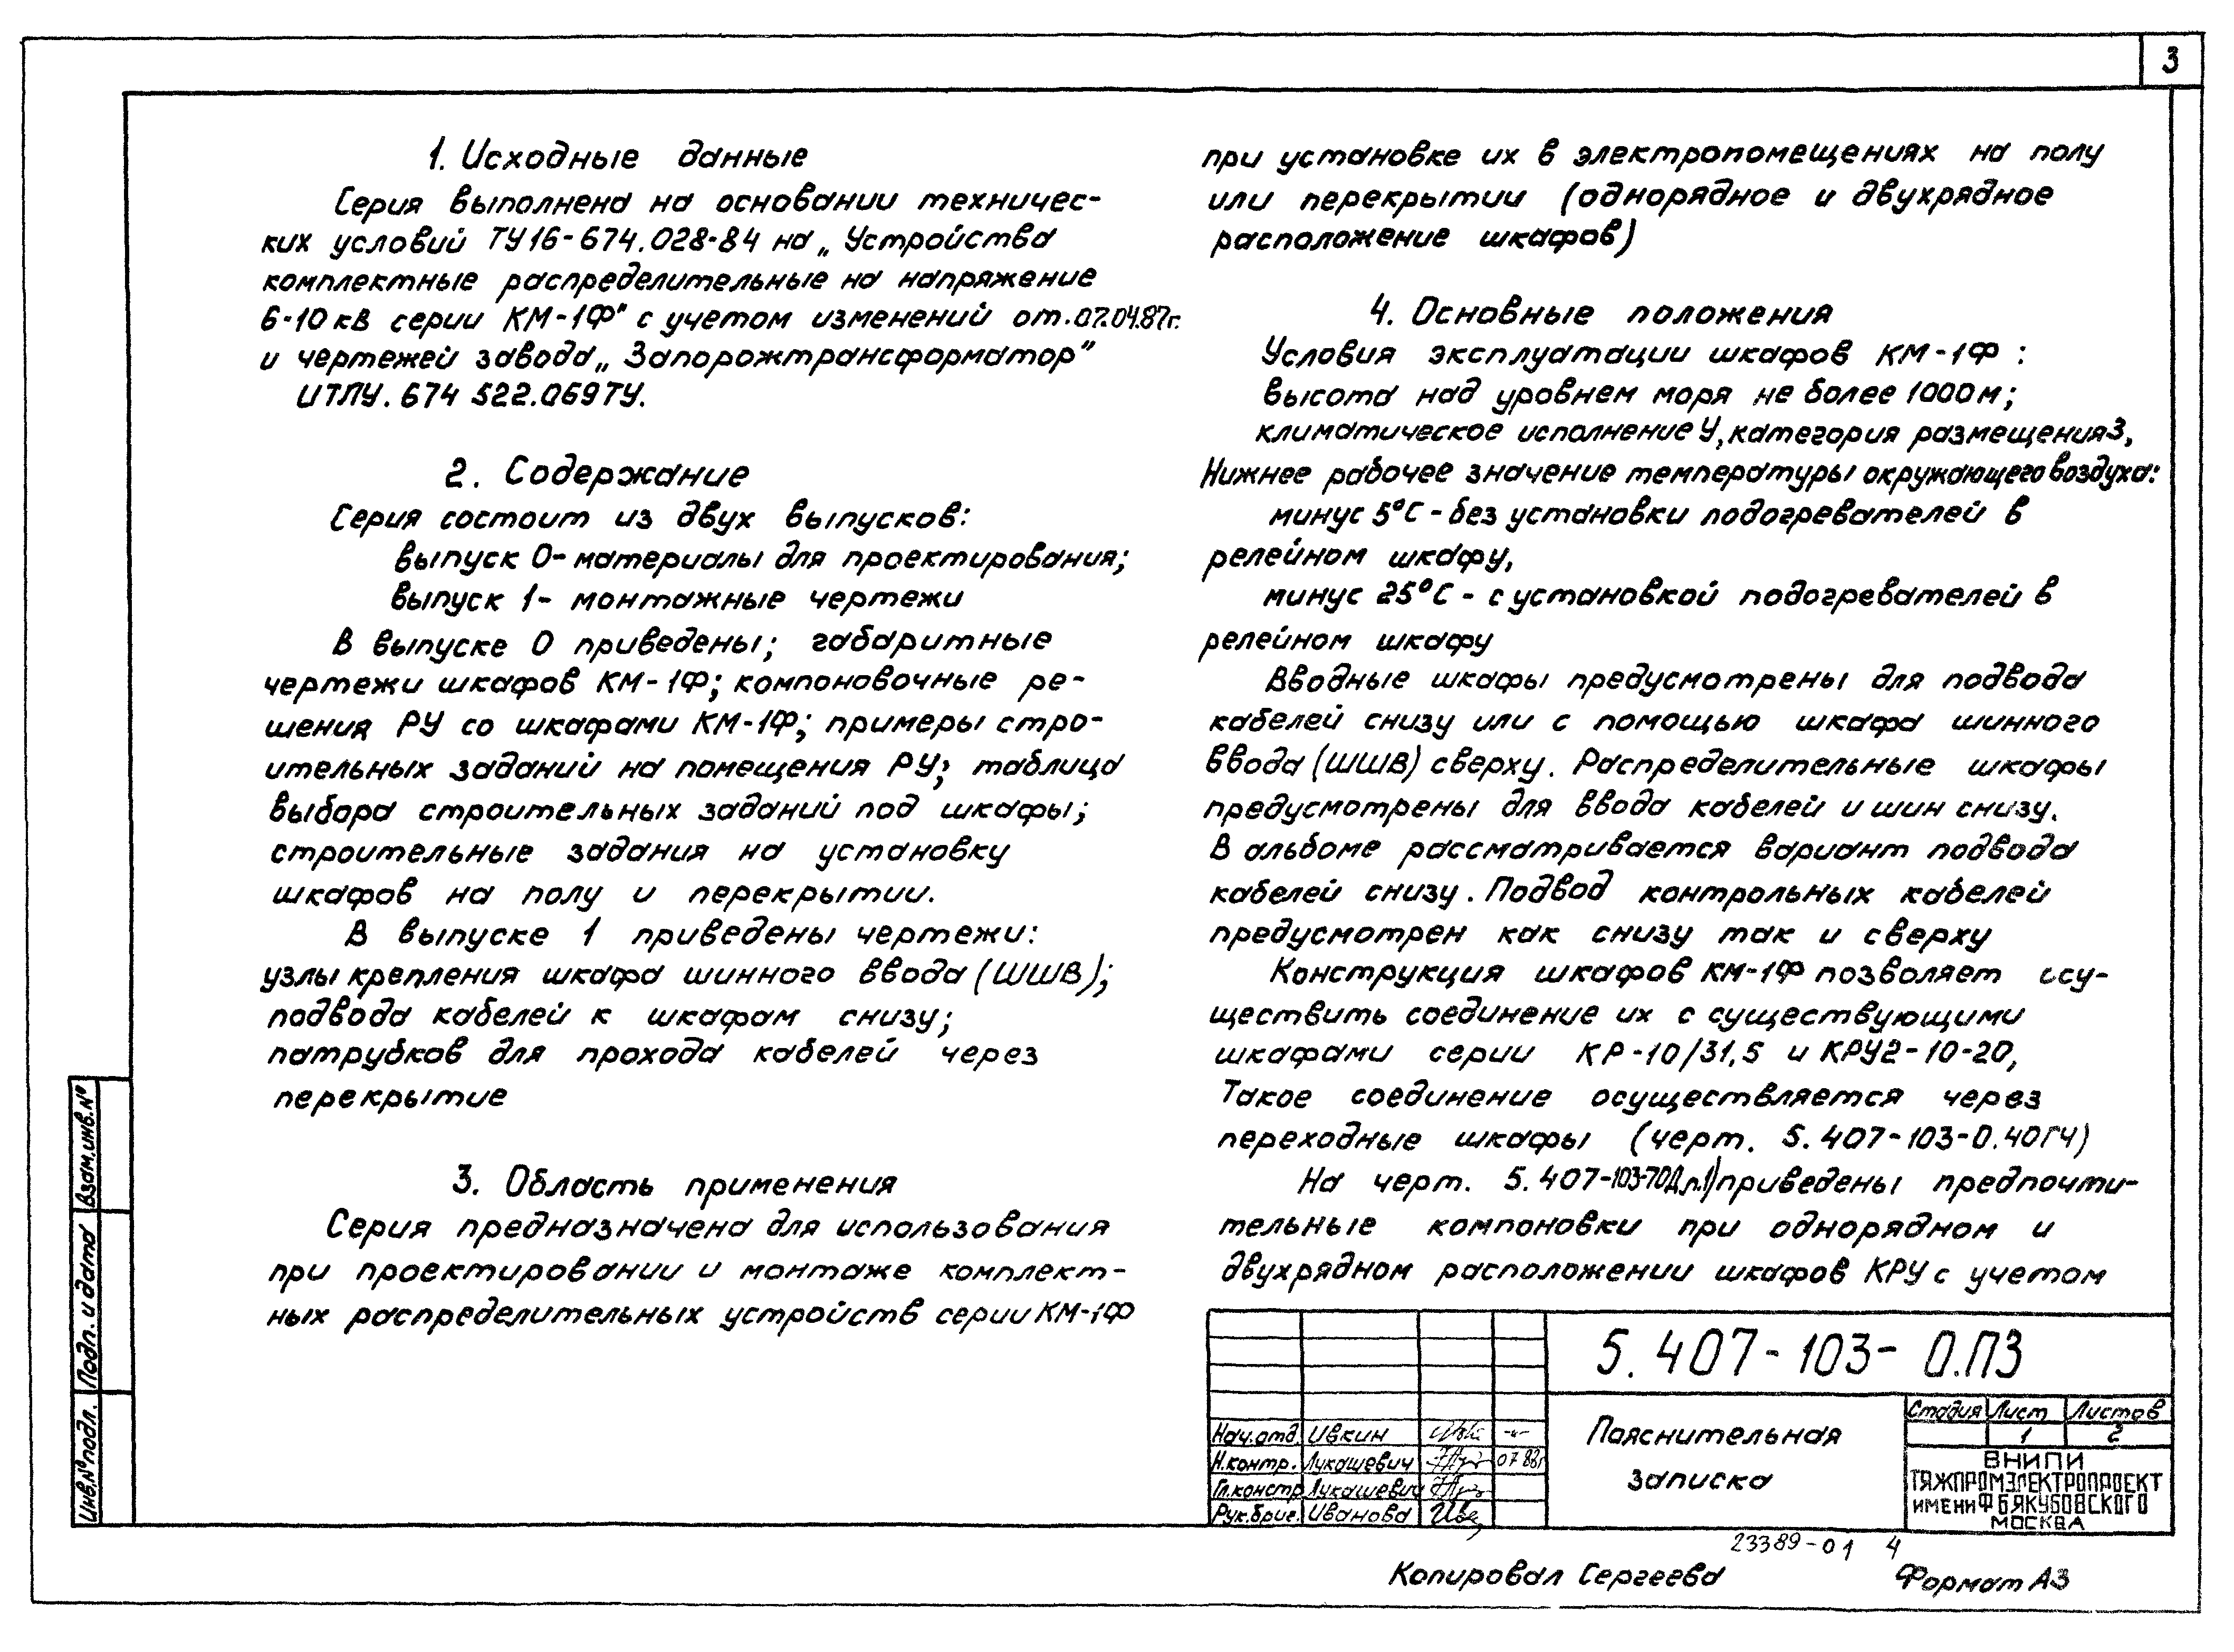 3
1. Исходные данные
Серия выполнена на основании техничес-
ких условий ТУ16-674.028-84 на „Устройства
комплектные распределительные на напряжение
6-10 кВ серии КМ-1Ф" с учетом изменений от.07.04.87г.
и чертежей завода „Запорожтрансформатор"
ИТЛУ.674 522.069ТУ.
2. Содержание
Серия состоит из двух выпусков:
выпуск 0- материалы для проектирования;
выпуск 1- монтажные чертежи
В выпуске 0 приведены; габаритные
чертежи шкафов КМ-1Ф; компоновочные ре-
шения РУ со шкафами КМ-1Ф; примеры стро-
ительных заданий на помещения РУ; таблица
выбора строительных заданий под шкафы;
строительные задания на установку
шкафов на полу и перекрытии.
В выпуске 1 приведены чертежи:
узлы крепления шкафа шинного ввода (ШШВ);
подвода кабелей к шкафам снизу;
патрубков для прохода кабелей через
перекрытие
3. Область применения
Серия предназначена для использования
при проектировании и монтаже комплект-
ных распределительных устройств серии КМ-1Ф
при установке их в электропомещениях на полу
или перекрытии (однорядное и двухрядное
расположение шкафов)
4. Основные положения
Условия эксплуатации шкафов КМ-1Ф :
высота над уровнем моря не более 1000м;
климатическое исполнение У, категория размещения 3,
Нижнее рабочее значение температуры окружающего воздуха:
минус 5°С - без установки подогревателей в
релейном шкафу,
минус 25°С - с установкой подогревателей в
релейном шкафу
Вводные шкафы предусмотрены для подвода
кабелей снизу или с помощью шкафа шинного
ввода (ШШВ) сверху. Распределительные шкафы
предусмотрены для ввода кабелей и шин снизу.
В альбоме рассматривается вариант подвода
кабелей снизу. Подвод контрольных кабелей
предусмотрен как снизу так и сверху
Конструкция шкафов КМ-1Ф позволяет осу-
ществить соединение их с существующими
шкафами серии КР-10/31,5 и КРУ2-10-20,
Такое соединение осуществляется через
переходные шкафы (черт. 5.407-103-0.40ГЧ)
На черт. 5.407-103-70Д л.1) приведены предпочти-
тельные компоновки при однорядном и
двухрядном расположении шкафов КРУ с учетом
Взам.инв.№
Подп. и дата
Инв.№ подл.
5.407-103- 0.ПЗ
Нач.отд. Ивкин
Н.контр. Лукашевич 07.88г
Гл.констр Лукашевич
Рук.бриг. Иванова
Пояснительная
записка
Стадия Лист Листов
1 2
ВНИПИ
ТЯЖПРОМЭЛЕКТРОПРОЕКТ
ИМЕНИ Ф.Б.ЯКУБОВСКОГО
МОСКВА
23389-01 4
Копировал Сергеева Формат А3